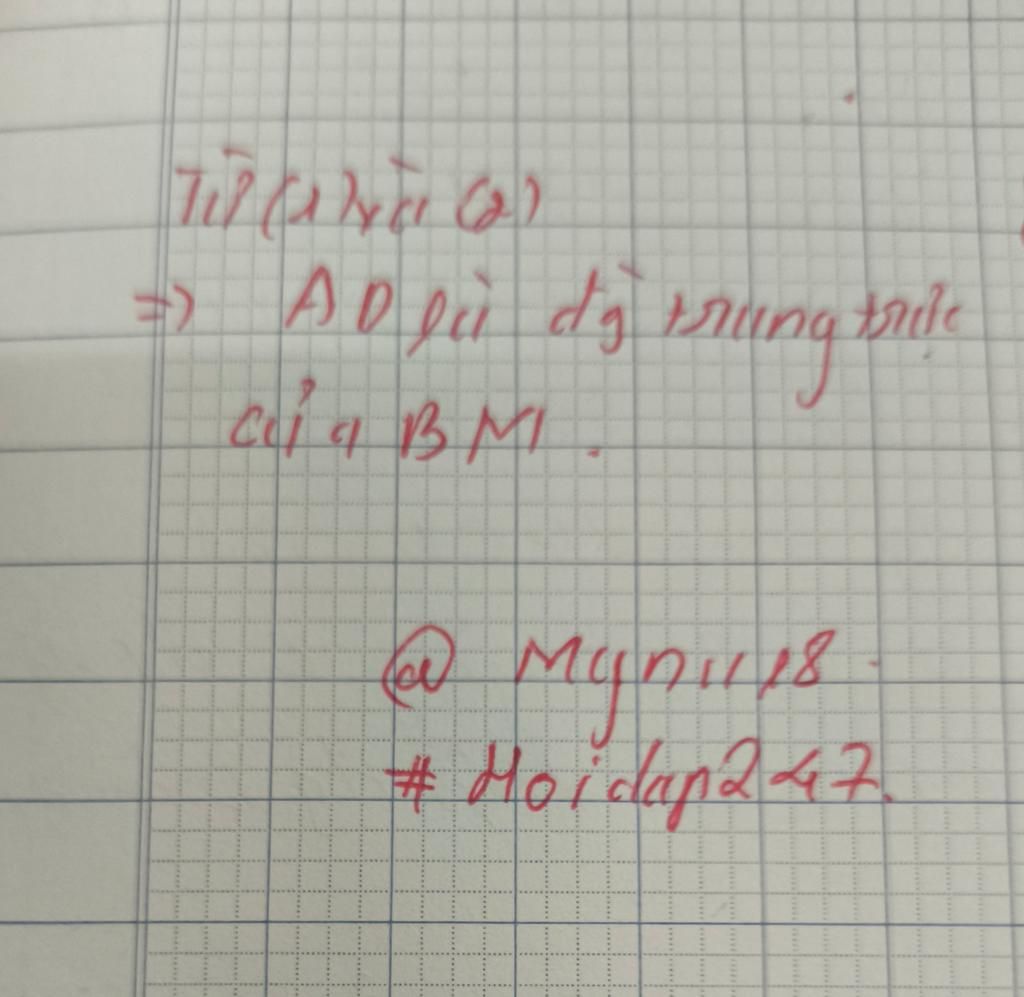 Từ (1) và (2)
=> AD là đg` trung trực
của BM.
@ Mynu18
# Hoidap247.